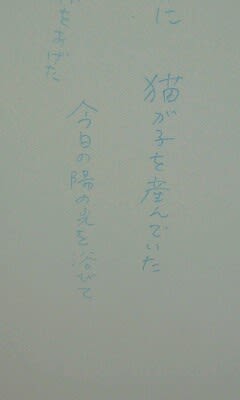 に
猫が子を産んでいた
今日の陽の光を浴びて
をあげた